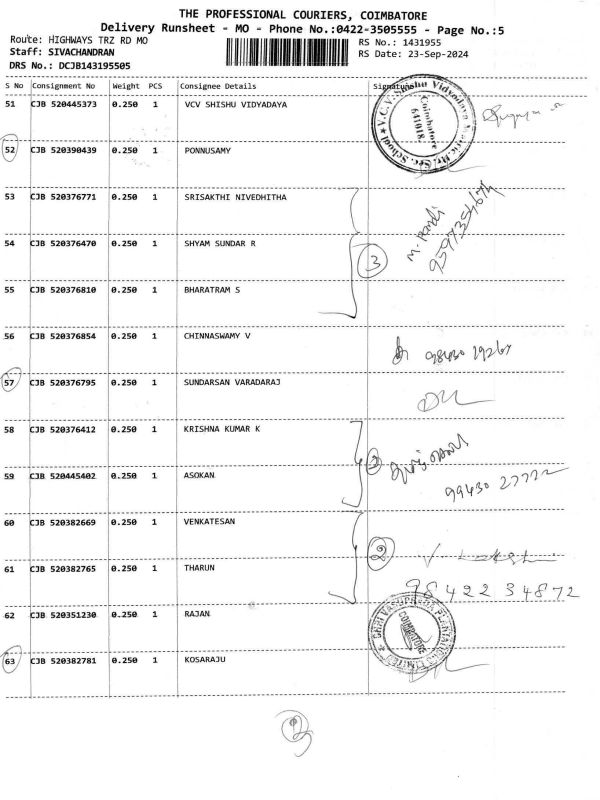 THE PROFESSIONAL COURIERS, COIMBATORE
Delivery Runsheet - MO - Phone No.:0422-3505555 - Page No.:5
Route: HIGHWAYS TRZ RD MO
RS No.: 1431955
Staff: SIVACHANDRAN
RS Date: 23-Sep-2024
DRS No.: DCJB143195505
S No Consignment No Weight PCS Consignee Details Signature
51 CJB 520445373 0.250 1 VCV SHISHU VIDYADAYA
52 CJB 520390439 0.250 1 PONNUSAMY
53 CJB 520376771 0.250 1 SRISAKTHI NIVEDHITHA
54 CJB 520376470 0.250 1 SHYAM SUNDAR R
3
55 CJB 520376810 0.250 1 BHARATRAM S
56 CJB 520376854 0.250 1 CHINNASWAMY V
57 CJB 520376795 0.250 1 SUNDARSAN VARADARAJ
58 CJB 520376412 0.250 1 KRISHNA KUMAR K
2
59 CJB 520445402 0.250 1 ASOKAN
99430 27722
60 CJB 520382669 0.250 1 VENKATESAN
2
61 CJB 520382765 0.250 1 THARUN
98422 34872
62 CJB 520351230 0.250 1 RAJAN
COIMBATORE
63 CJB 520382781 0.250 1 KOSARAJU